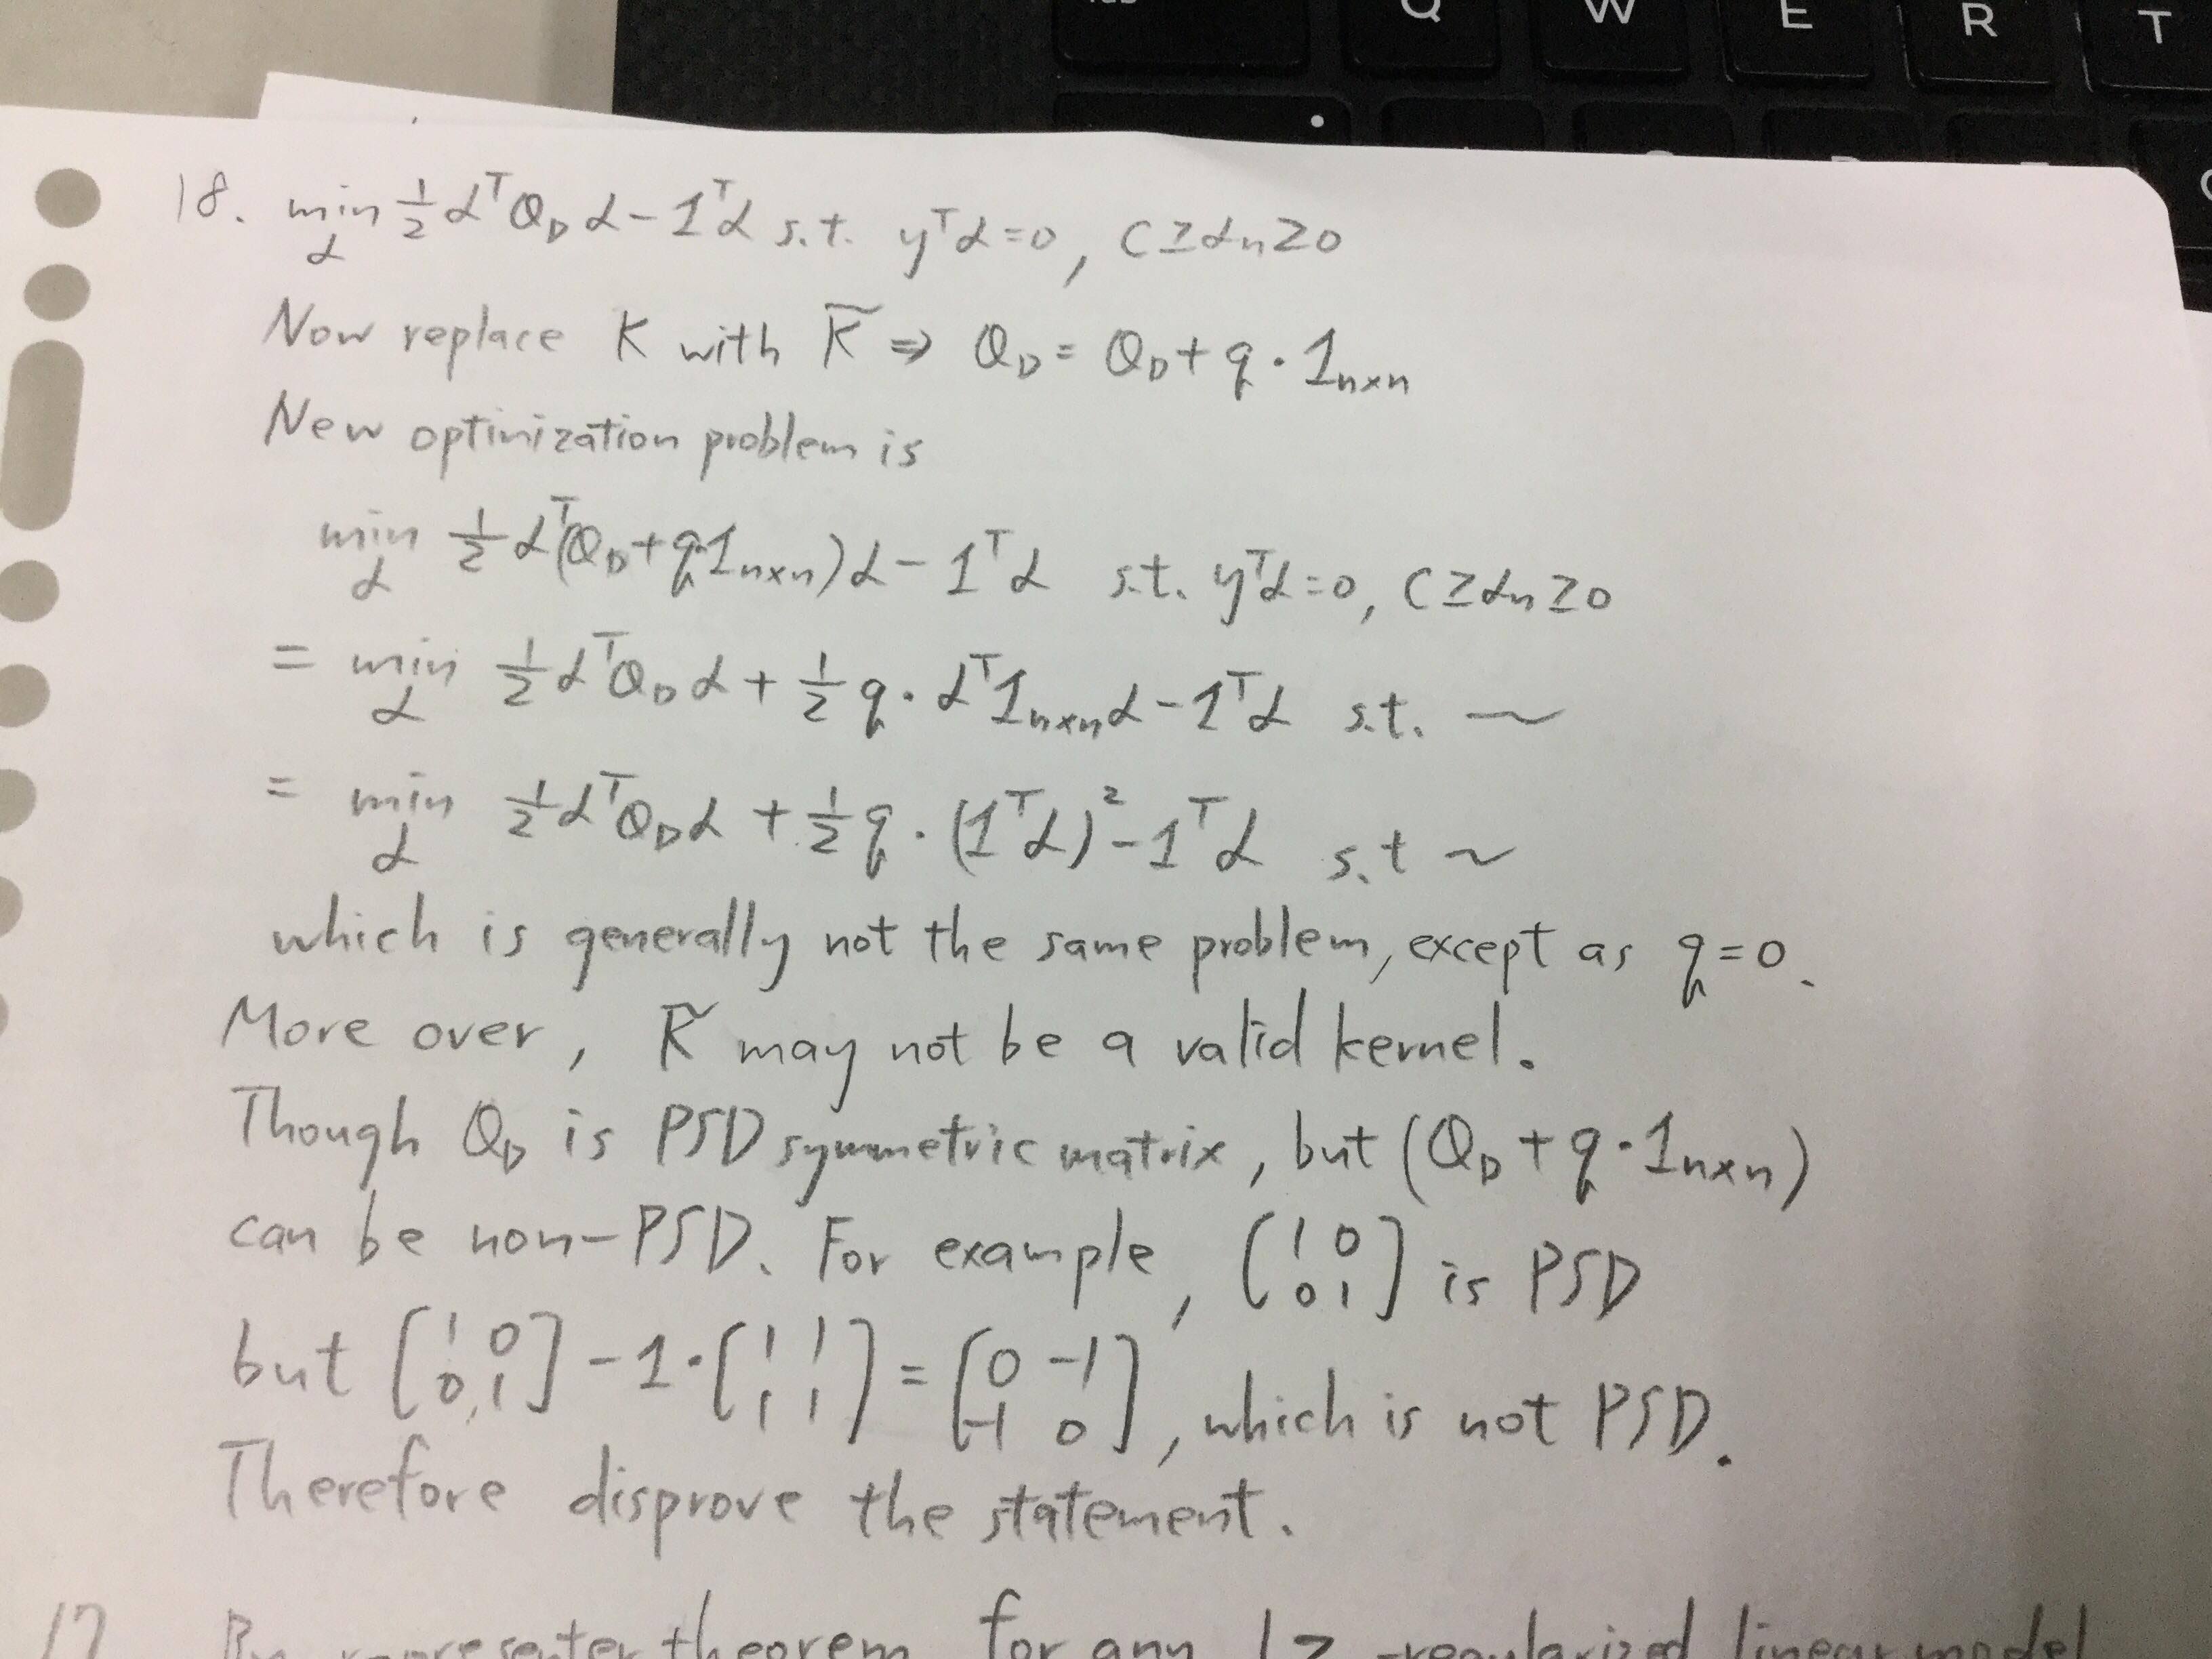 Tab Q W E R T
18. min_α ½ αᵀQ_D α − 1ᵀα s.t. yᵀα=0, C≥αₙ≥0
Now replace K with K̃ ⇒ Q_D = Q_D + q·1ₙₓₙ
New optinization problem is
min_α ½ αᵀ(Q_D+q·1ₙₓₙ)α − 1ᵀα s.t. yᵀα=0, C≥αₙ≥0
= min_α ½ αᵀQ_D α + ½ q·αᵀ1ₙₓₙα − 1ᵀα s.t. ~
= min_α ½ αᵀQ_D α + ½ q·(1ᵀα)² − 1ᵀα s.t ~
which is generally not the same problem, except as q=0.
More over, K̃ may not be a valid kernel.
Though Q_D is PSD symmetric matrix, but (Q_D + q·1ₙₓₙ)
can be non-PSD. For example, [1 0; 0 1] is PSD
but [1 0; 0 1] − 1·[1 1; 1 1] = [0 −1; −1 0], which is not PSD.
Therefore disprove the statement.
By representer theorem, for any L2-regularized linear model